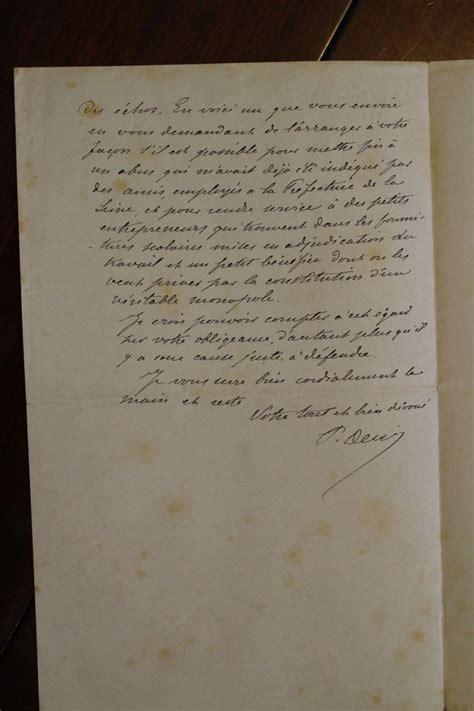 des échos. En voici un que vous envoie
en vous demandant de l'arranger à votre
façon s'il est possible pour mettre fin à
un abus qui m'avait déjà été indiqué par
des amis employés à la Préfecture de la
Seine, et pour rendre service à des petits
entrepreneurs qui trouvent dans les fourni-
-tures scolaires mises en adjudication du
travail et un petit bénéfice dont on les
veut privés par la constitution d'un
véritable monopole.
Je crois pouvoir compter à cet égard
sur votre obligeance, d'autant plus qu'il
y a une cause juste à défendre.
Je vous serre bien cordialement la
main et reste
Votre tout et bien dévoué
P.